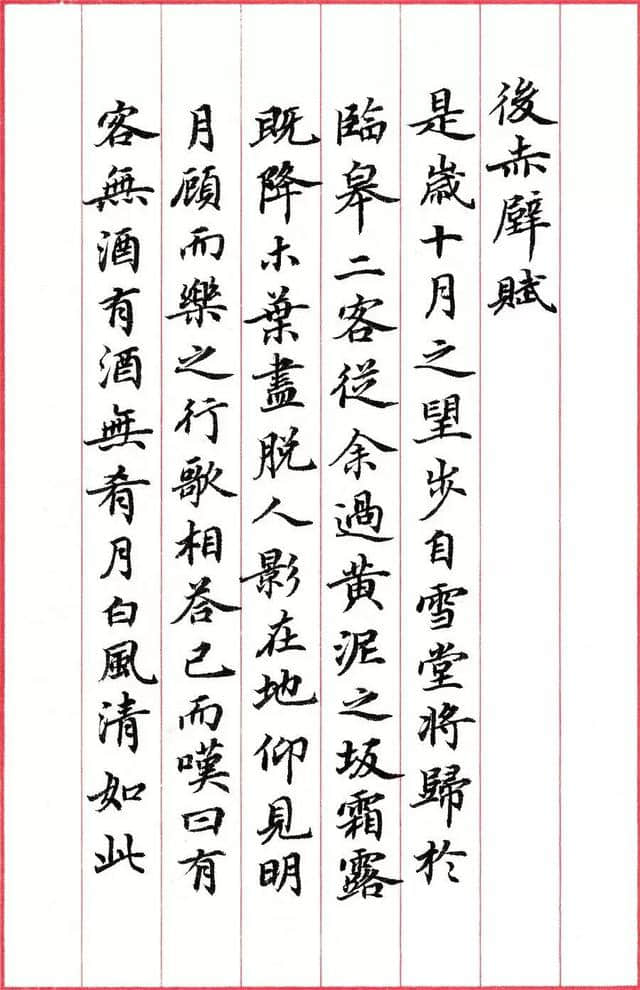 後赤壁賦
是歲十月之望步自雪堂將歸於
臨皋二客從余過黃泥之坂霜露
既降木葉盡脫人影在地仰見明
月顧而樂之行歌相答已而嘆曰有
客無酒有酒無肴月白風清如此